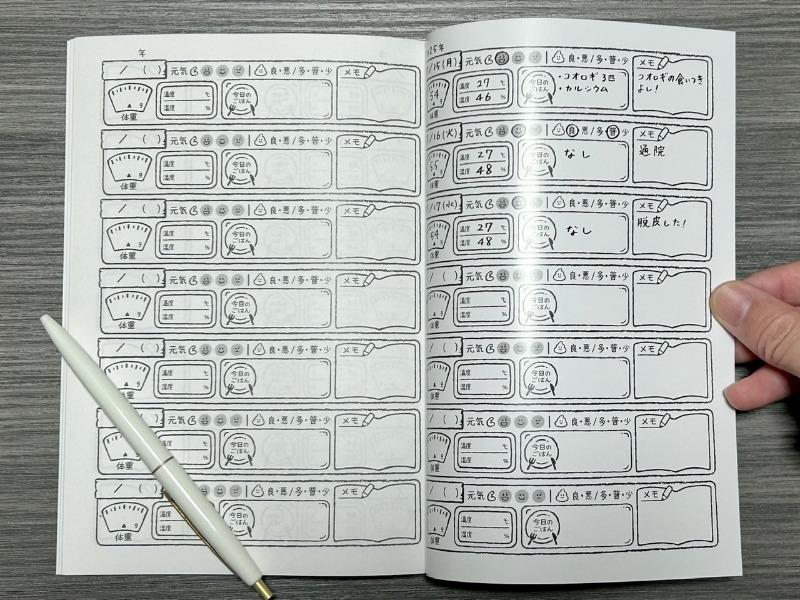 年
/ ( ) 元気 良・悪/多・普・少 メモ
温度 ℃
湿度 %
今日のごはん
g
体重
/ ( ) 元気 良・悪/多・普・少 メモ
温度 ℃
湿度 %
今日のごはん
g
体重
/ ( ) 元気 良・悪/多・普・少 メモ
温度 ℃
湿度 %
今日のごはん
g
体重
/ ( ) 元気 良・悪/多・普・少 メモ
温度 ℃
湿度 %
今日のごはん
g
体重
/ ( ) 元気 良・悪/多・普・少 メモ
温度 ℃
湿度 %
今日のごはん
g
/ ( ) 元気 良・悪/多・普・少 メモ
温度 ℃
湿度 %
今日のごはん
g
/ ( ) 元気 良・悪/多・普・少 メモ
温度
湿度
今日のごはん
g
体重
25年
/15(月) 元気 良・悪/多・普・少 メモ
温度 27 ℃
湿度 46 %
今日のごはん
・コオロギ3匹
・カルシウム
コオロギの食いつき
よし!
54
g
体重
/16(火) 元気 良・悪/多・普・少 メモ
温度 27 ℃
湿度 48 %
今日のごはん
なし
通院
55
g
体重
/17(水) 元気 良・悪/多・普・少 メモ
温度 27 ℃
湿度 48 %
今日のごはん
なし
脱皮した!
54
g
体重
/ ( ) 元気 良・悪/多・普・少 メモ
温度 ℃
湿度 %
今日のごはん
g
体重
/ ( ) 元気 良・悪/多・普・少 メモ
温度 ℃
湿度 %
今日のごはん
g
体重
/ ( ) 元気 良・悪/多・普・少 メモ
温度 ℃
湿度 %
今日のごはん
g
体重
/ ( ) 元気 良・悪/多・普・少 メモ
温度 ℃
湿度 %
今日のごはん
g
体重